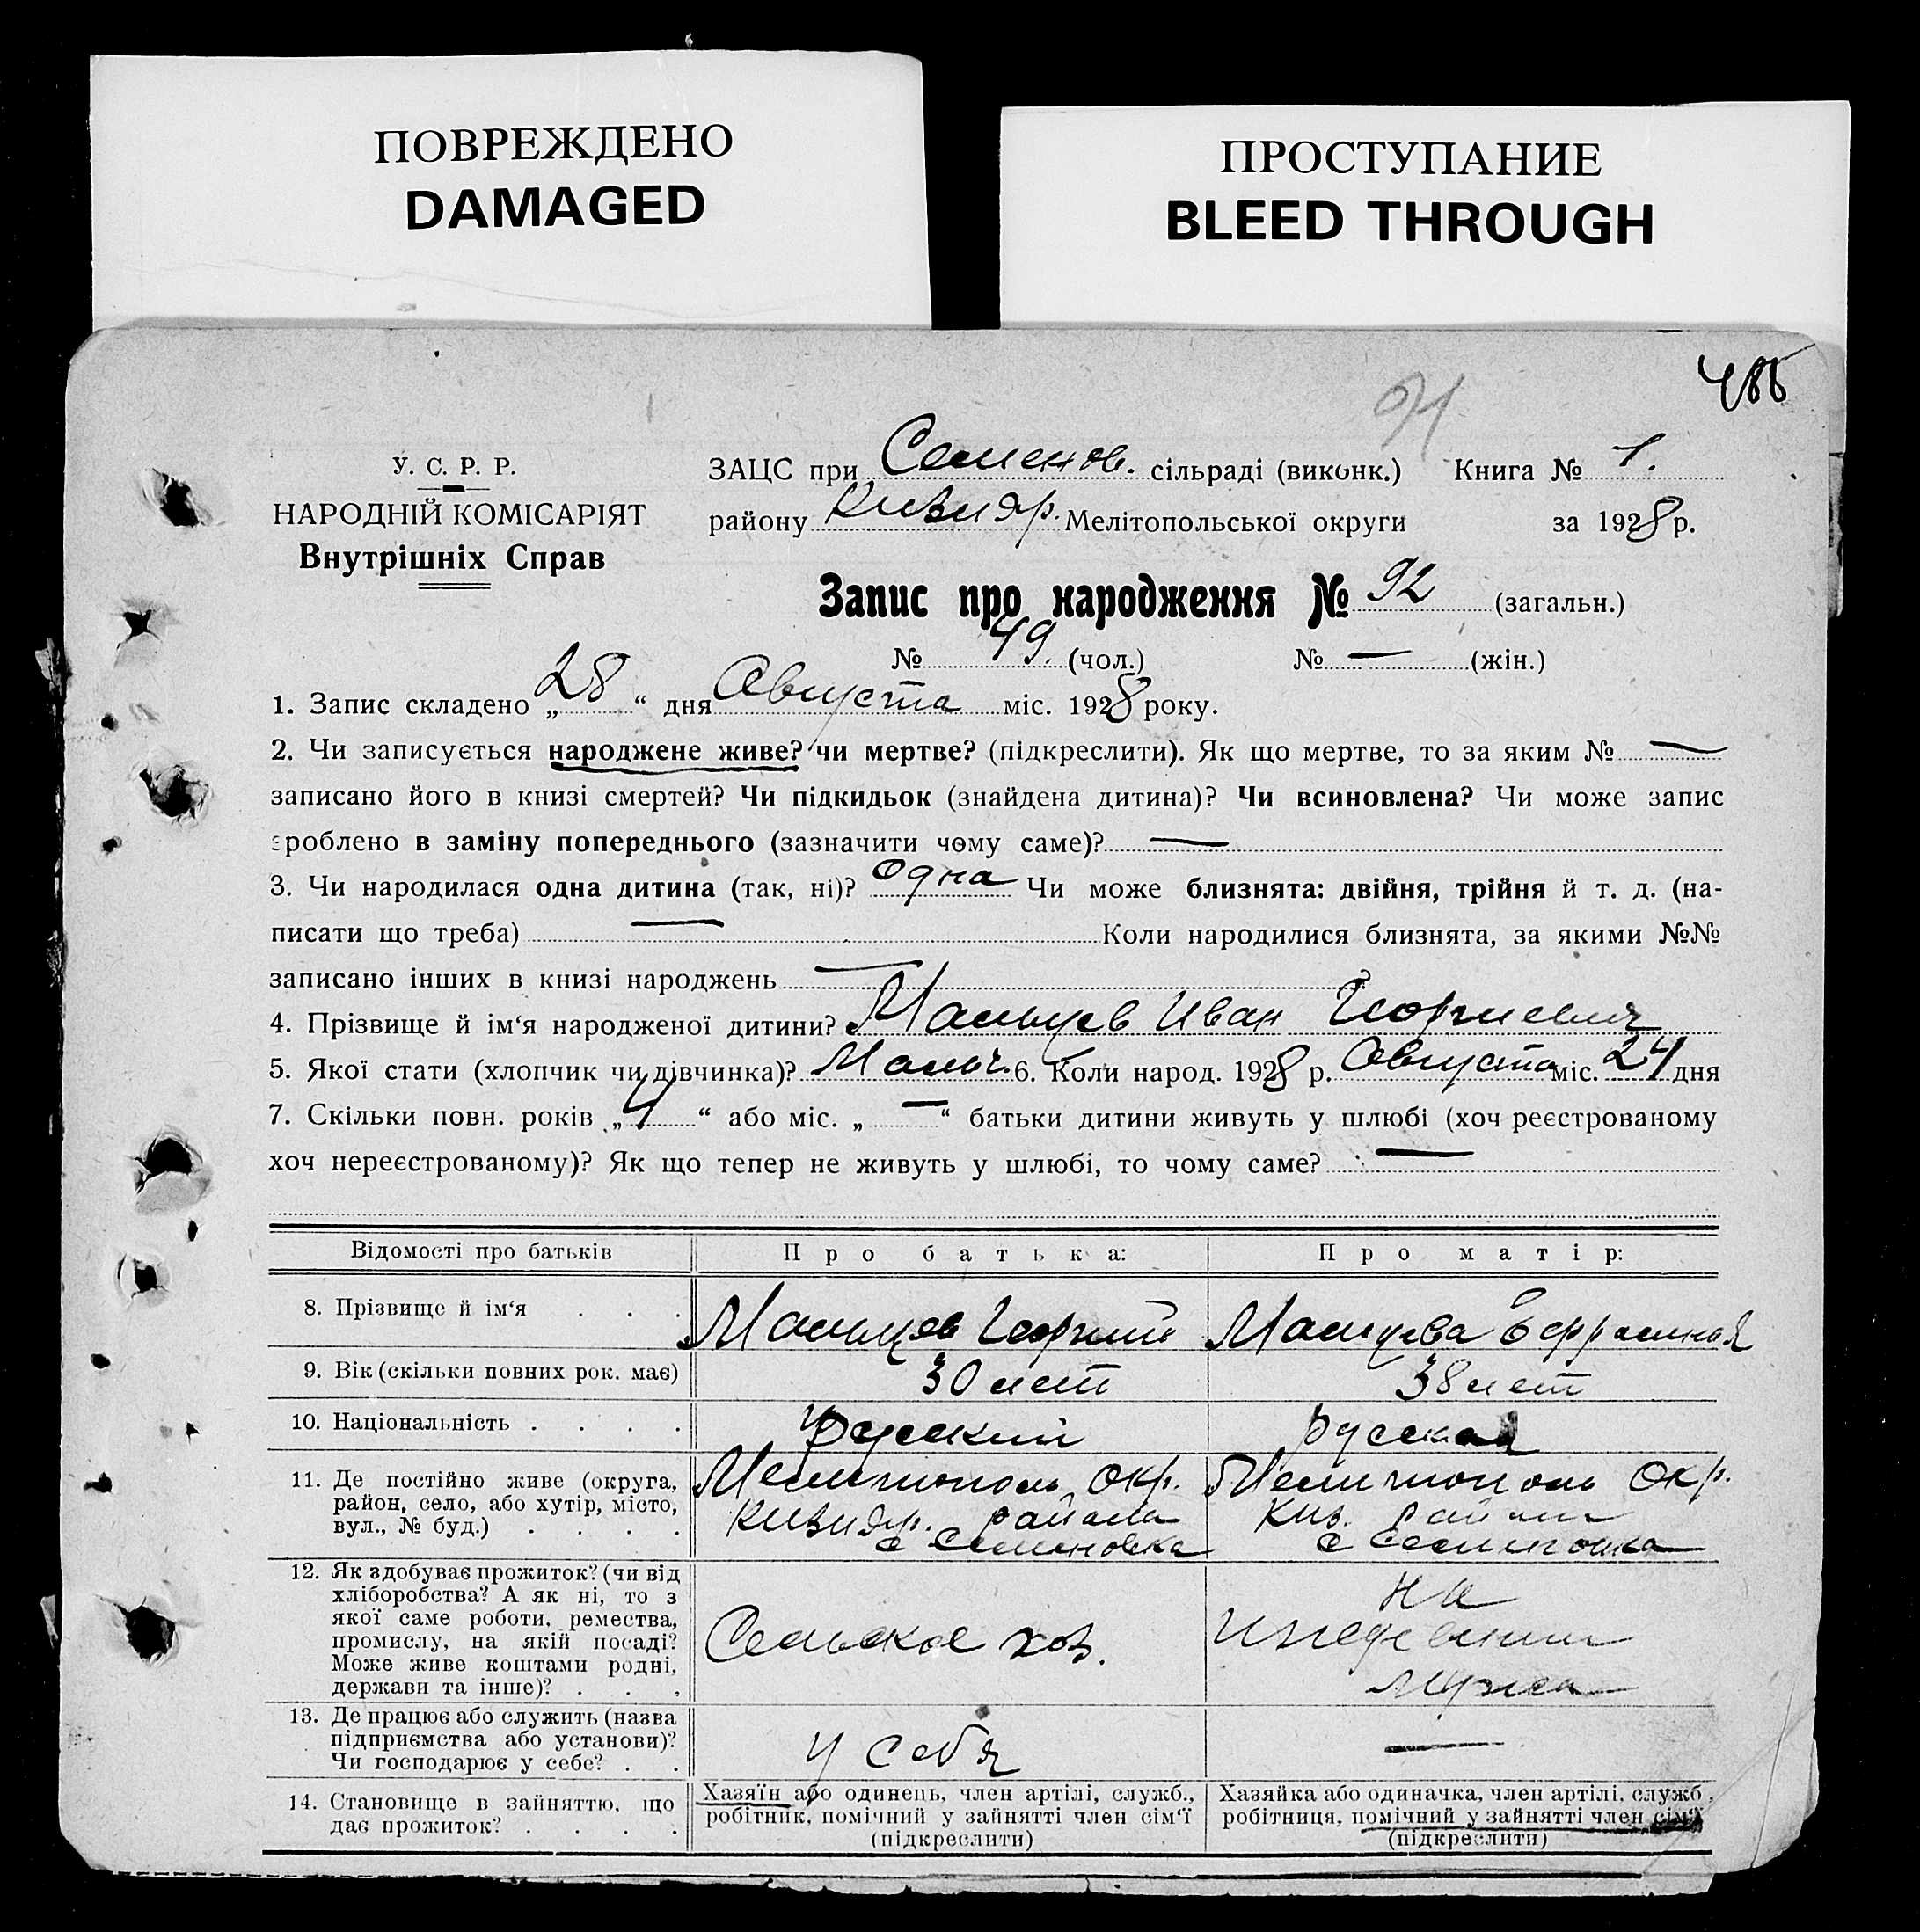 ПОВРЕЖДЕНО
DAMAGED
ПРОСТУПАНИЕ
BLEED THROUGH
У. С. Р. Р.
НАРОДНІЙ КОМІСАРІЯТ
Внутрішніх Справ
ЗАЦС при Семенов. сільраді (виконк.) Книга № 1.
району Кизияр. Мелітопольської округи за 1928 р.
Запис про народження № 92 (загальн.)
№ 49. (чол.) № — (жін.)
1. Запис складено „28“ дня Августа міс. 1928 року.
2. Чи записується народжене живе? чи мертве? (підкреслити). Як що мертве, то за яким № —
записано його в книзі смертей? Чи підкидьок (знайдена дитина)? Чи всиновлена? Чи може запис
зроблено в заміну попереднього (зазначити чому саме)? —
3. Чи народилася одна дитина (так, ні)? Одна Чи може близнята: двійня, трійня й т. д. (на-
писати що треба) — Коли народилися близнята, за якими №№
записано інших в книзі народжень —
4. Прізвище й ім‘я народженої дитини? Мальцев Иван Георгиевич
5. Якої стати (хлопчик чи дівчинка)? Мальч. 6. Коли народ. 1928 р. Августа міс. 24 дня
7. Скільки повн. років „4“ або міс. „—“ батьки дитини живуть у шлюбі (хоч реєстрованому
хоч нереєстрованому)? Як що тепер не живуть у шлюбі, то чому саме? —
Відомості про батьків Про батька: Про матір:
8. Прізвище й ім‘я . . . Мальцев Георгий Мальцева
9. Вік (скільки повних рок. має) 30 лет 38 лет
10. Національність . . . . русский русская
11. Де постійно живе (округа,
район, село, або хутір, місто,
вул., № буд.) . . . .
Мелитополь. Окр.
Кизияр. района
с Семеновка
Мелитополь Окр.
Киз. района
с Семеновка
12. Як здобуває прожиток? (чи від
хліборобства? А як ні, то з
якої саме роботи, ремества,
промислу, на якій посаді?
Може живе коштами родні,
держави та інше)? . . .
Сельское хоз.
на
иждевении
мужа
13. Де працює або служить (назва
підприємства або установи)?
Чи господарює у себе? . .
у себя
—
14. Становище в зайняттю, що
дає прожиток? . . . .
Хазяїн або одинець, член артілі, служб.,
робітник, помічний у зайнятті член сім‘ї
(підкреслити)
Хазяйка або одиначка, член артілі, служб.,
робітниця, помічний у зайнятті член сім‘ї
(підкреслити)